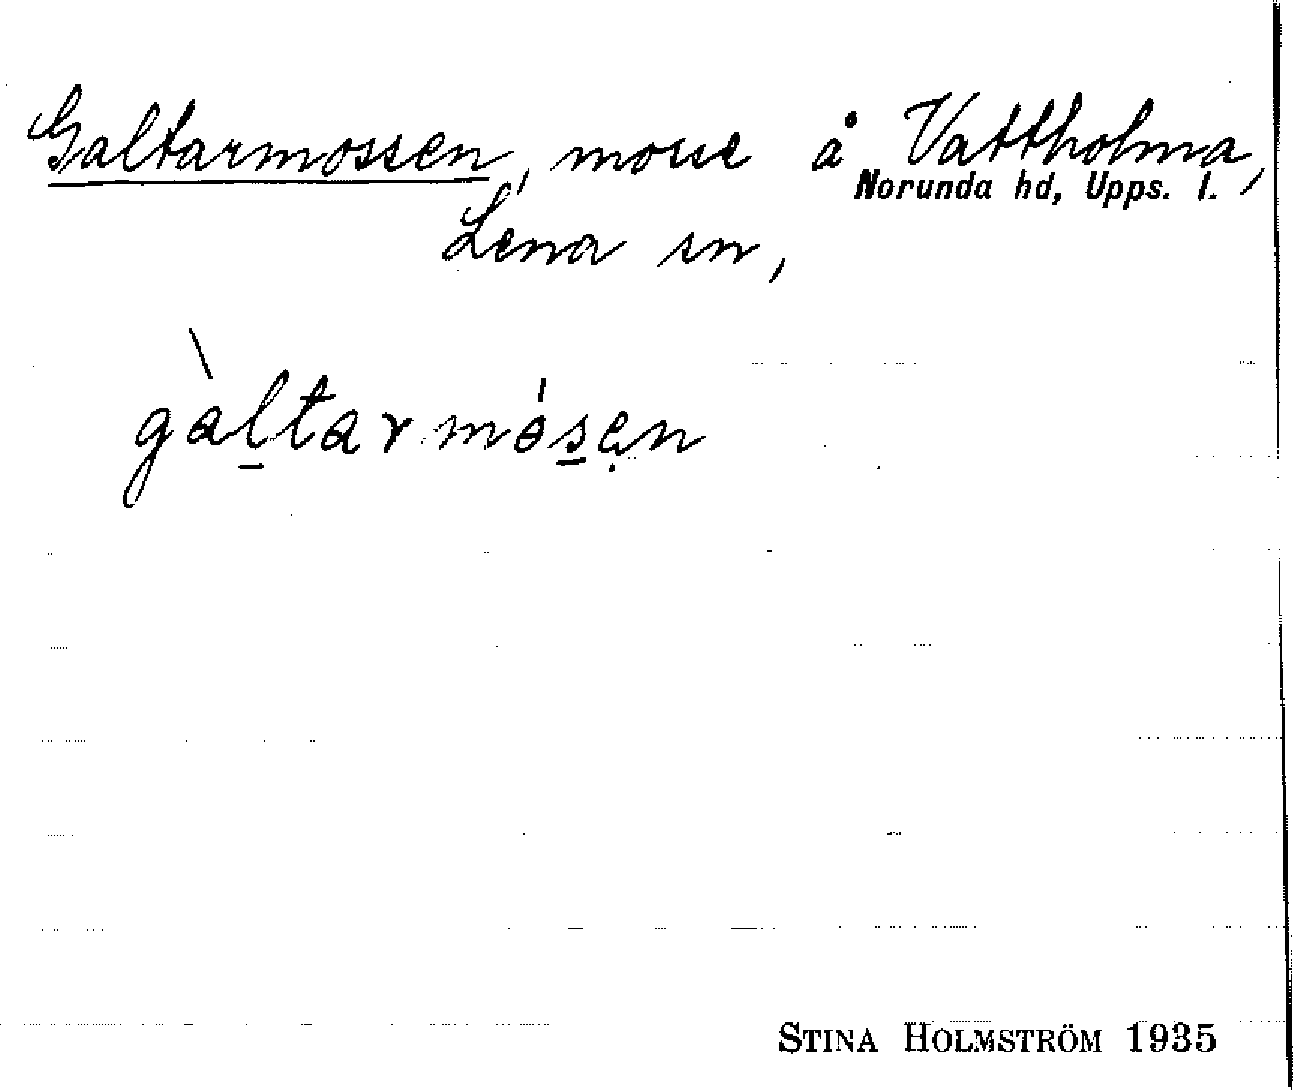 Galtarmossen, mosse å Vattholma,
Norunda hd, Upps. l.
Lena sn,
gàl̠tarmós̠ẹn
STINA HOLMSTRÖM 1935